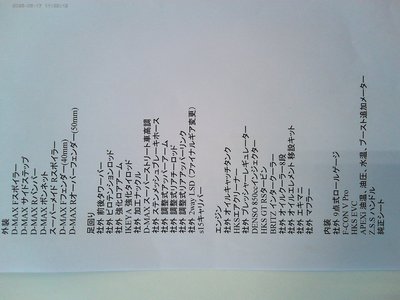 外装
D-MAX Fスポイラー
D-MAX サイドステップ
D-MAX Rバンパー
D-MAX Fボンネット
スーパーメイド Rスポイラー
D-MAX Fフェンダー(40mm)
D-MAX Rオーバーフェンダー(50mm)
足回り
社外 前後タワーバー
社外 ピロテンションロッド
社外 強化ロアアーム
IKEYA 強化タイロッド
社外 加工ナックル
D-MAX スーパーストリート車高調
社外 ステンメッシュブレーキホース
社外 調整式アッパーアーム
社外 調整式リアトーロッド
社外 調整式リアラック
社外 2way LSD (ファイナルギア変更)
s15キャリパー
エンジン
社外 オイルキャッチタンク
HKSエアクリーナー
社外 プレッシャーレギュレーター
DENSO 850ccインジェクター
HKS GT RSタービン
BRITZ インタークーラー
社外 オイルクーラー8段
社外 オイルエレメント 移設キット
社外 エキマニ
社外 マフラー
内装
社外 9点式ロールゲージ
F-CON V Pro
HKS EVC
APEXi 油温、油圧、水温、ブースト追加メーター
Z.S.S ハンドル
純正シート